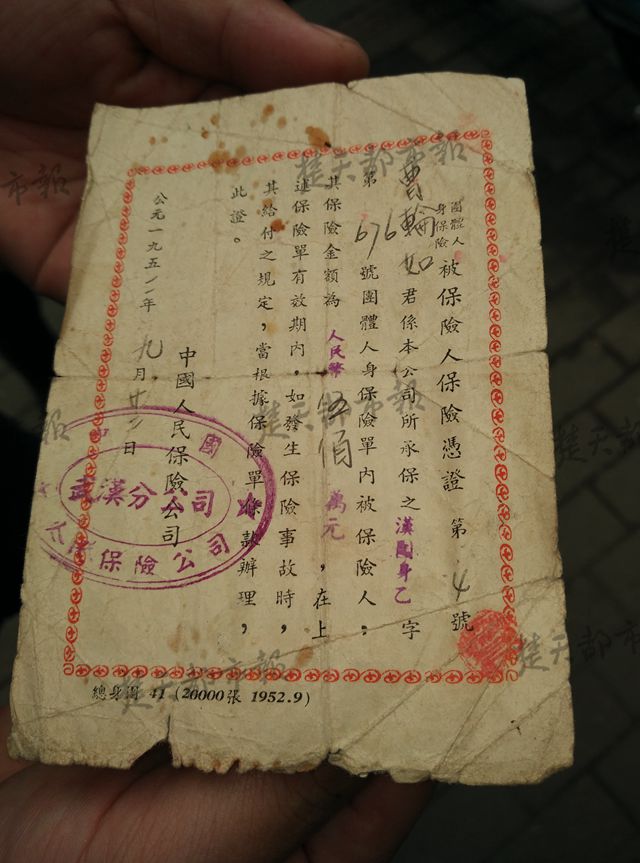 團體人身保險
被保險人保險憑證 第 4 號
曹輪如 君係本公司所承保之漢團身乙字
第 676 號團體人身保險單內被保險人，
其保險金額為人民幣 伍佰 萬元，在上
述保險單有效期內，如發生保險事故時，
其給付之規定，當根據保險單條款辦理，
此證。
中國人民保險公司
公元一九五 年 九月 日
國 保險公司
武漢分公司
總身團 41 (20000张 1952.9)
楚天都市報
市報
楚天都市報
楚天都市報
楚天都市報
楚天都市報